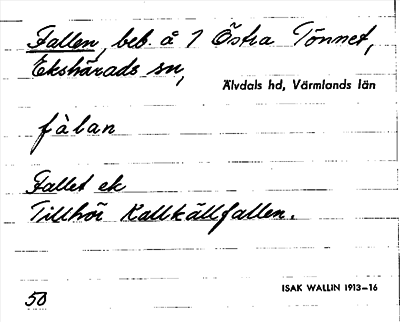 Fallen, beb. å 7 Östra Tönnet,
Ekshärads sn,
Älvdals hd, Värmlands län
fàlan
Fallet ek
Tillhör Kallkällfallen.
50
ISAK WALLIN 1913–16